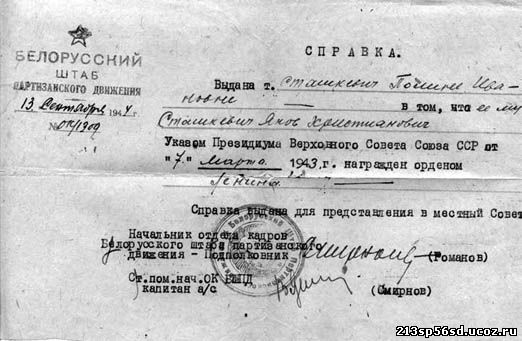 БЕЛОРУССКИЙ
ШТАБ
ПАРТИЗАНСКОГО ДВИЖЕНИЯ
13 Сентября 1944
№ 1309
СПРАВКА.
Выдана т. Сташкевич Полине Ива-
новне
в том, что ее му
Сташкевич Яков Христианович
Указом Президиума Верховного Совета Союза ССР от
"7" Марта 1943 г. награжден орденом
Ленина
Справка выдана для представления в местный Совет
Начальник отдела кадров
Белорусского штаба партизанского
движения - Подполковник (Романов)
Ст. пом. нач. ОК БШПД
капитан а/с (Смирнов)
213sp56sd.ucoz.ru